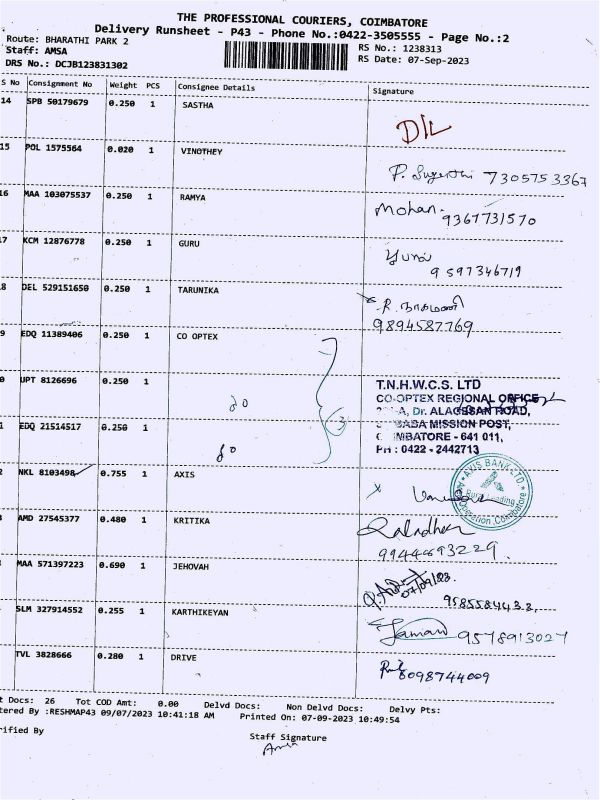 THE PROFESSIONAL COURIERS, COIMBATORE
Delivery Runsheet - P43 - Phone No.:0422-3505555 - Page No.:2
Route: BHARATHI PARK 2
RS No.: 1238313
Staff: AMSA
RS Date: 07-Sep-2023
DRS No.: DCJB123831302
S No Consignment No Weight PCS Consignee Details Signature
14 SPB 50179679 0.250 1 SASTHA
D/L
15 POL 1575564 0.020 1 VINOTHEY
7305753367
16 MAA 103075537 0.250 1 RAMYA
Mohan.
9367731570
17 KCM 12876778 0.250 1 GURU
9597346719
8 DEL 529151650 0.250 1 TARUNIKA
R. நாகமணி
9894587769
9 EDQ 11389406 0.250 1 CO OPTEX
0 UPT 8126696 0.250 1
T.N.H.W.C.S. LTD
CO-OPTEX REGIONAL OFFICE
A, Dr. ALAGESAN ROAD,
BABA MISSION POST,
1 EDQ 21514517 0.250 1
COIMBATORE - 641 011,
PH : 0422 - 2442713
2 NKL 8103498 0.755 1 AXIS
AXIS BANK LTD
Coimbatore
3 AMD 27545377 0.480 1 KRITIKA
9944693229.
MAA 571397223 0.690 1 JEHOVAH
07/09/23.
9585584432,
SLM 327914552 0.255 1 KARTHIKEYAN
9578913027
TVL 3828666 0.280 1 DRIVE
8098744009
t Docs: 26 Tot COD Amt: 0.00 Delvd Docs: Non Delvd Docs: Delvy Pts:
tered By :RESHMAP43 09/07/2023 10:41:18 AM Printed On: 07-09-2023 10:49:54
rified By
Staff Signature
Amsa